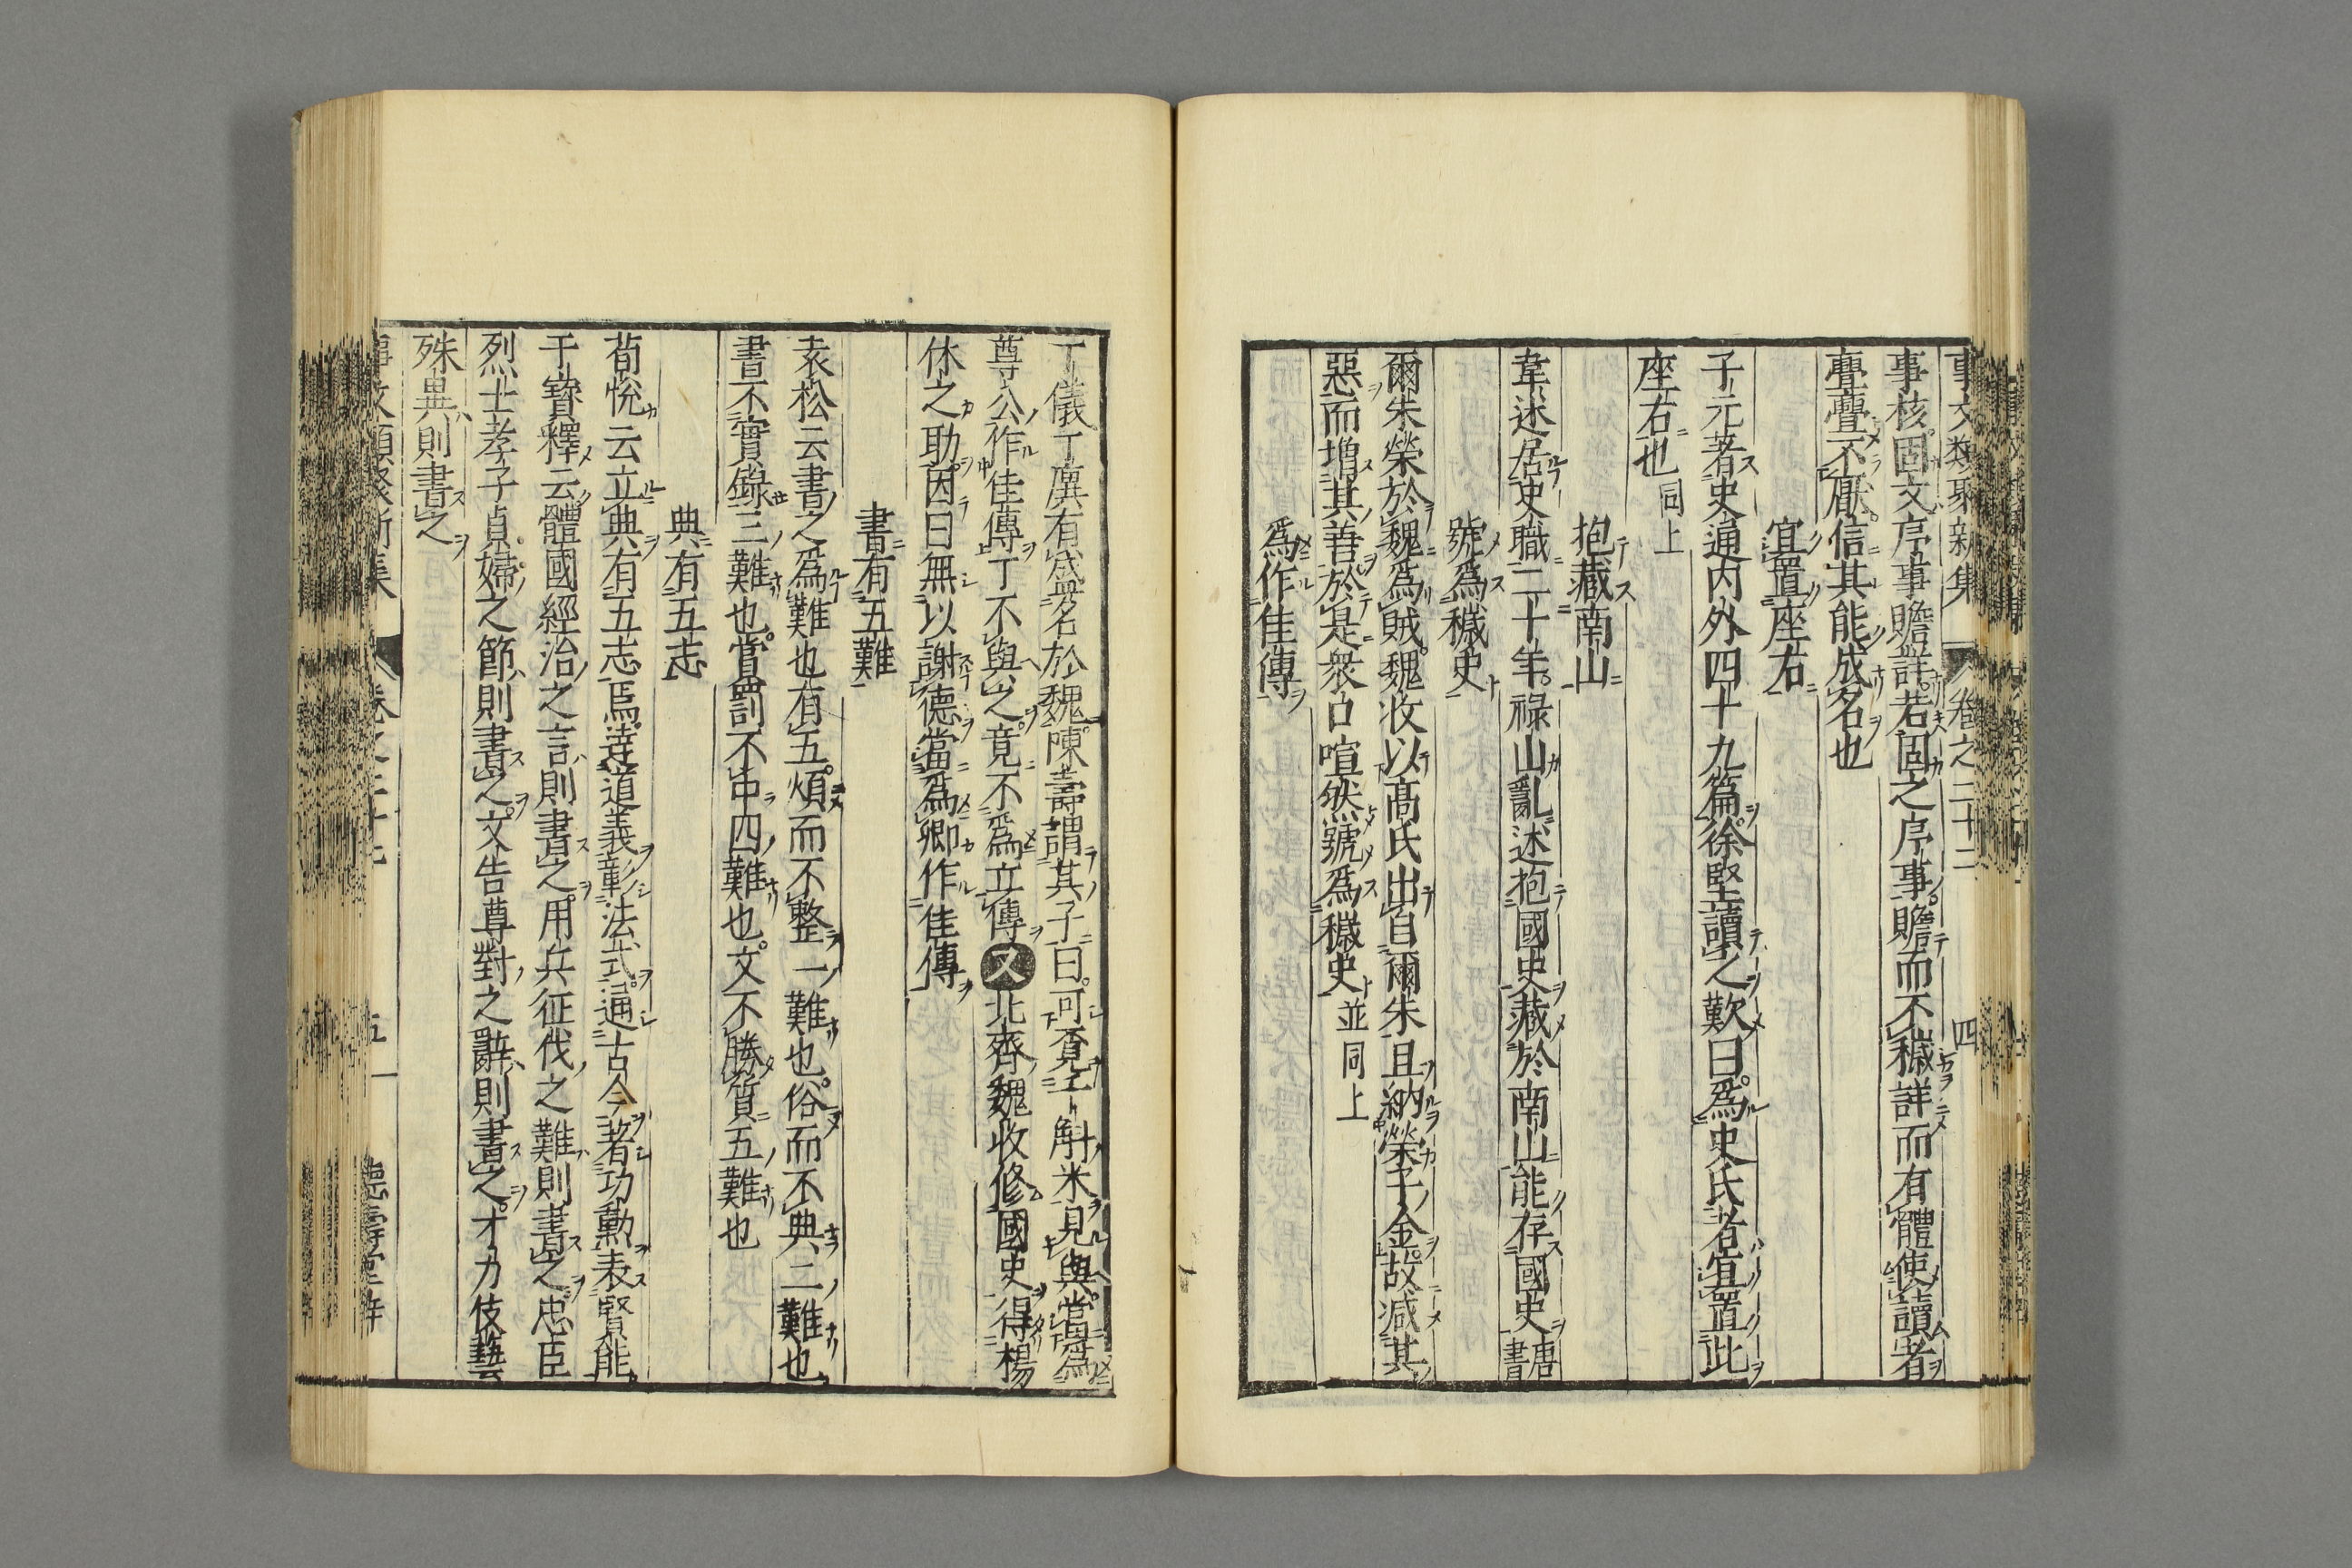 事文類聚新集 卷之二十二 四
事核固文序事贍詳若固之序事贍而不穢詳而有體使讀者
亹亹不厭信其能成名也
宜置座右
子元著史通内外四十九篇徐堅讀之歎曰爲史氏者宜置此
座右也同上
抱藏南山
韋述居史職二十年禄山亂述抱國史藏於南山能存國史唐書
號爲穢史
爾朱榮於魏爲賊魏收以髙氏出自爾朱且納榮子金故减其
惡而增其善於是衆口喧然號爲穢史並同上
爲作佳傳
丁儀丁廙有盛名於魏陳壽謂其子曰可覔千斛米見與當爲
尊公作佳傳丁不與之竟不爲立傳又北齊魏收修國史得楊
休之助因曰無以謝德當爲卿作佳傳
書有五難
袁松云書之爲難也有五煩而不整一難也俗而不典二難也
書不實錄三難也賞罰不中四難也文不勝質五難也
典有五志
荀悅云立典有五志焉逹道義彰法式通古今著功勳表賢能
于寶釋云體國經治之言則書之用兵征伐之難則書之忠臣
烈士孝子貞婦之節則書之文告尊對之辭則書之才力伎藝
殊異則書之